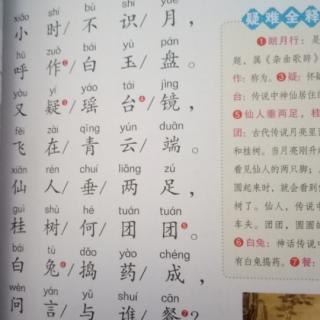 xiǎo shí bù shí yuè
小时/不识/月，
hū zuò bái yù pán
呼作❷/白玉/盘。
yòu yí yáo tái jìng
又疑❸/瑶台❹/镜，
fēi zài qīng yún duān
飞在/青云/端。
xiān rén chuí liǎng zú
仙人/垂/两足，
guì shù hé tuán tuán
桂树/何/团团❺。
bái tù dǎo yào chéng
白兔❻/捣药/成，
wèn yán yǔ shuí cān
问言/与谁/餐❼？
疑难全释
❶朗月行：
题，属《杂曲歌辞》
作：称为。❸疑：怀
台：传说中神仙居住的
❺仙人垂两足，桂
团：古代传说月亮里
和桂树。当月亮刚升
看见仙人的两只脚，
圆起来时，就会看到
样子。仙人，传说中
车夫。团团，圆圆的
❻白兔：神话传说中
有白兔捣药。❼餐：